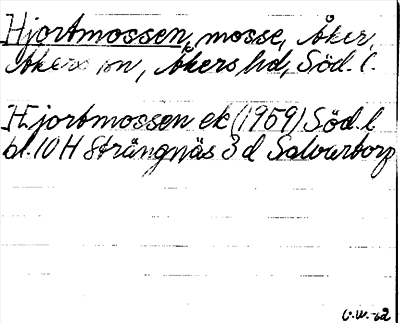 Hjortmossen, mosse, Åker,
Åkers sn, Åkers hd, Söd. l.
Hjortmossen ek (1959) Söd. l
bl. 10 H Strängnäs 3 d Solvarborg
G.W.-62